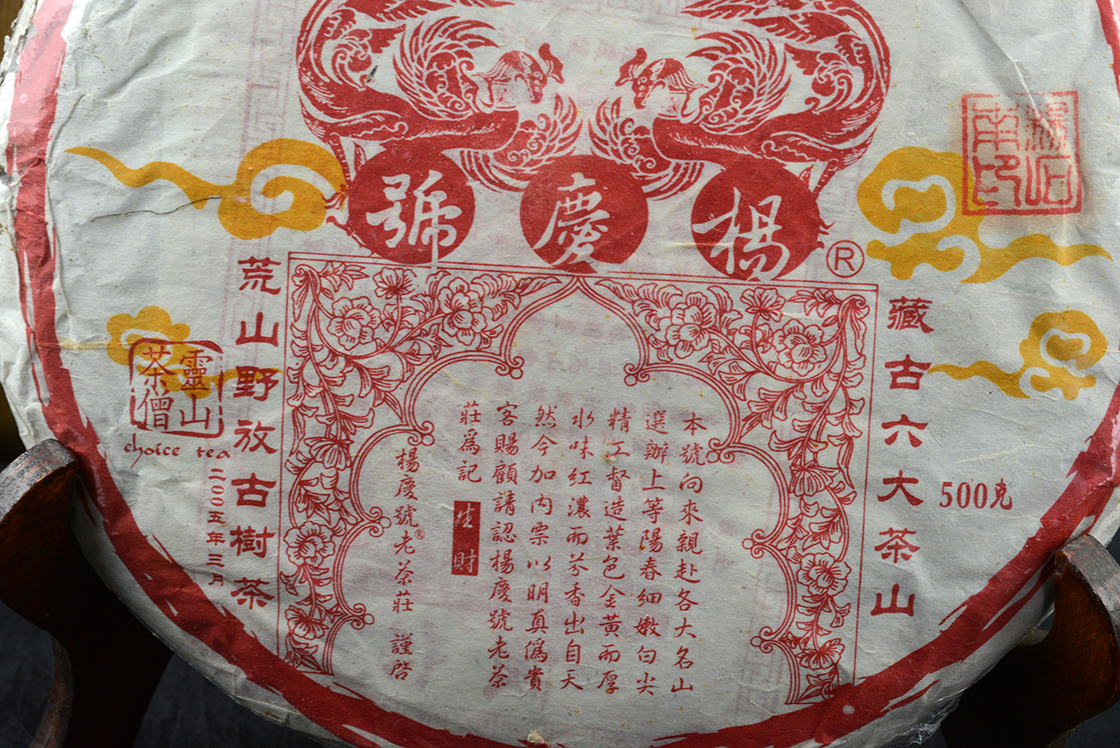 楊慶號
®
藏古六大茶山
500克
本號向來親赴各大名山
選辦上等陽春細嫩白尖
精工督造葉色金黃而厚
水味紅濃而芬香出自天
然今加內票以明真僞貴
客賜顧請認楊慶號老茶
莊爲記
生財
楊慶號®老茶莊 謹啓
荒山野放古樹茶
二〇〇五年三月
靈山
茶僧
choice tea